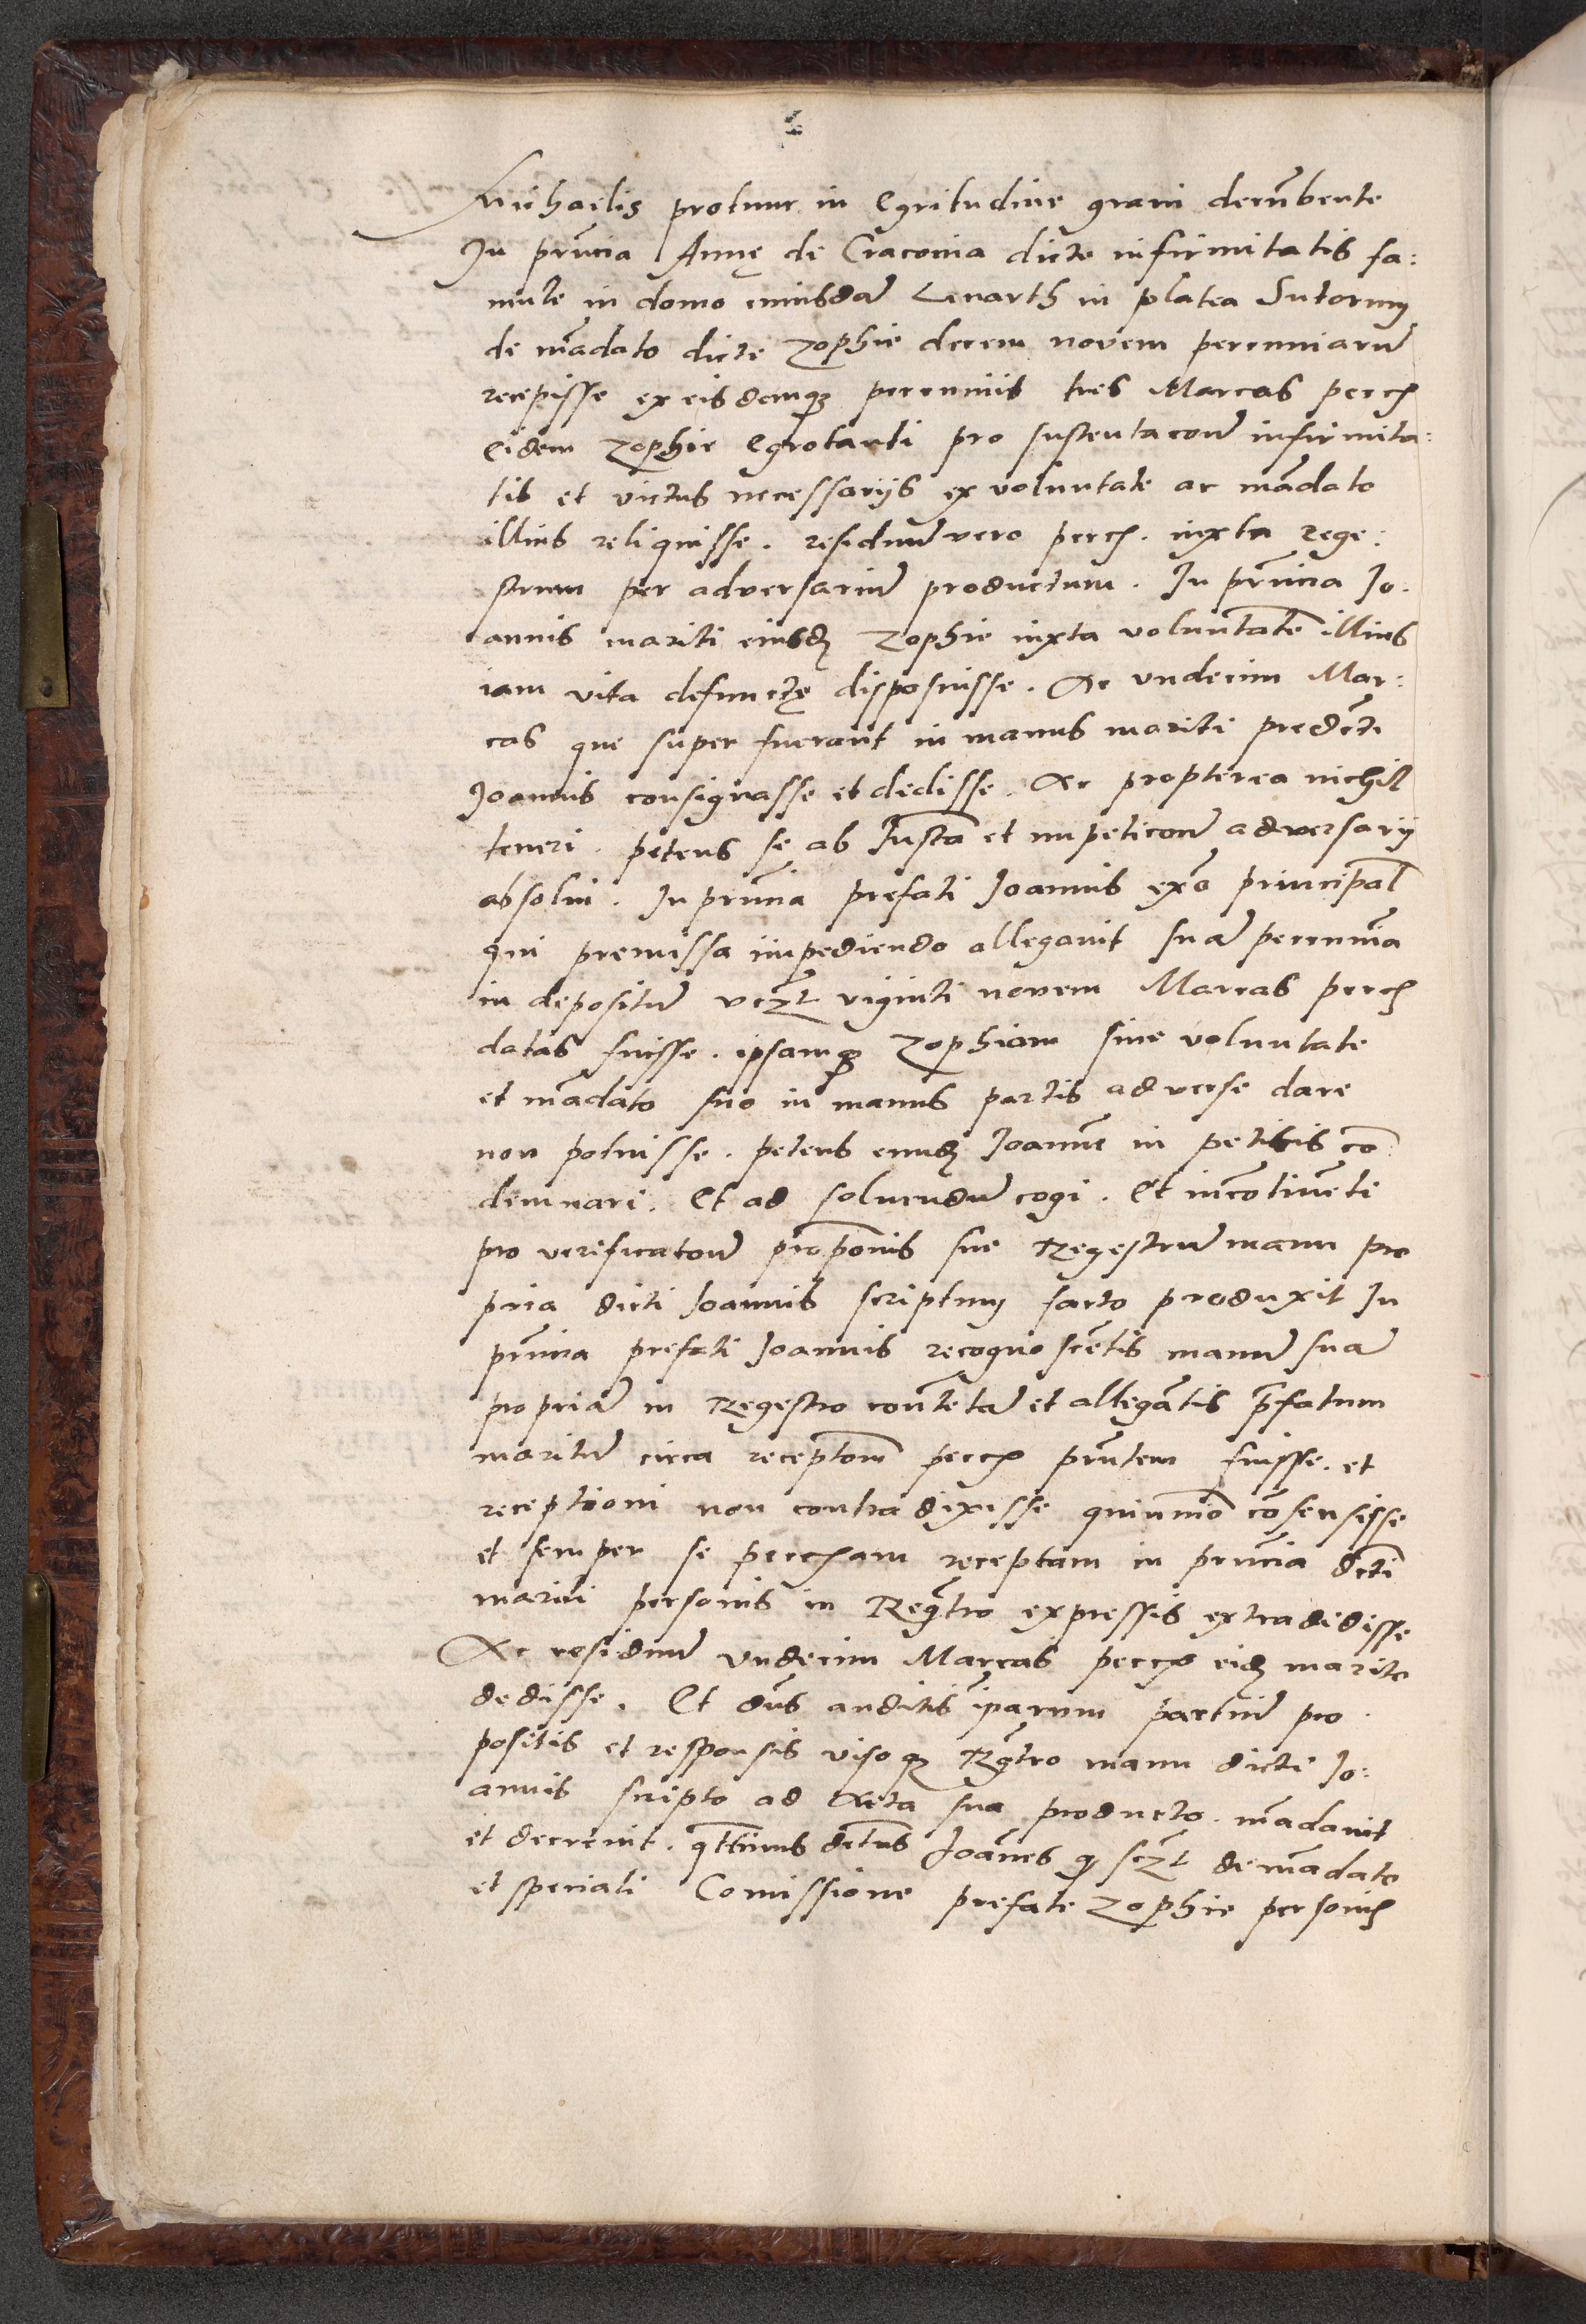 Michaelis protunc in Egritudine gravi decũbente
In pñcia Annę de Cracovia dicte infirmitatis fa:
mule in domo cuiusdã Lenarth in platea Sutorum
de mãdato dicte Zophie decem novem pecuniarũ
recepisse ex eisdemqȝ pecuniis tres Marcas pecc
Eidem Zophie Egrotanti pro sustentacoñe infirmita:
tis et victus necessariis ex voluntate ac mãdato
illius reliquisse. residuũ vero pecc. iuxta rege:
strum per adversariũ productum. In pñcia Jo.
annis mariti eiusdȝ Zophie iuxta voluntatẽ illius
iam vita defunctę disposuisse. Ac undecim Mar:
cas que super fuerant in manus mariti predicti
Joannis consignasse et dedisse. Ac propterea nichil
teneri. petens se ab Instã et impeticoñe adversarij
absolvi. In pñcia prefati Joannis exo principal
qui premissa impediendo allegavit suã pecuniã
in depositũ vcȝt viginti novem Marcas pecc
datas fuisse. ipsamqȝ Zophiam sine voluntate
et mãdato suo in manus partis adverse dare
non potuisse. petens eundȝ Joannẽ in petitis cõ
demnari. Et ad solvendũ cogi. Et incõtinẽti
pro verificatoñe propõnis sue Regestrũ manu pro
pria dicti Joannis scriptum facto produxit In
pñcia prefati Joannis recognoscẽtis manũ suã
propriã in Regestro contẽtã et allegãtis p̃fatum
maritũ circa receptoñem pecc pñtem fuisse. et
receptioni non contradixisse quiimmo cõsensisse
et semper se peccam receptam in pñcia dcti
mariti personis in Regr̃tro expressis extradidisse
Ac residuũ undecim Marcas pecc eidȝ marito
dedisse. Et dñs auditis ip̃arum partiũ pro
positis et responsis visoqȝ Rgr̃tro manu dicti Jo:
annis scripto ad Acta sua producto. mãdavit
et decrevit. qttinus dctus Joãnes qȝ scȝt de mãdato
et speciali Comissione prefate Zophie personis